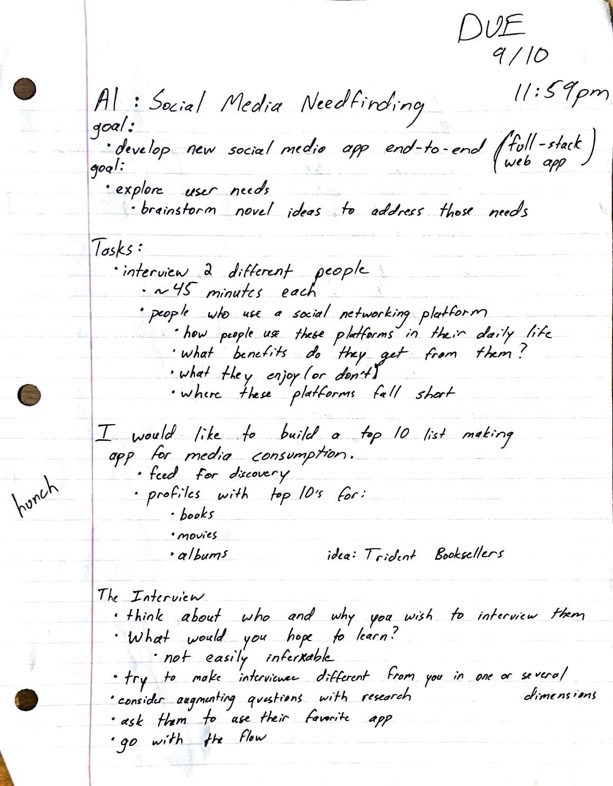 DUE
9/10
11:59pm
A1: Social Media Needfinding
goal:
• develop new social media app end-to-end (full-stack web app)
goal:
• explore user needs
• brainstorm novel ideas to address those needs
Tasks:
• interview 2 different people
• ~45 minutes each
• people who use a social networking platform
• how people use these platforms in their daily life
• what benefits do they get from them?
• what they enjoy (or don't)
• where these platforms fall short
I would like to build a top 10 list making
app for media consumption.
• feed for discovery
hunch
• profiles with top 10's for:
• books
• movies
• albums idea: Trident Booksellers
The Interview
• think about who and why you wish to interview them
• What would you hope to learn?
• not easily inferxable
• try to make interviewee different from you in one or several dimensions
• consider augmenting questions with research
• ask them to use their favorite app
• go with the flow